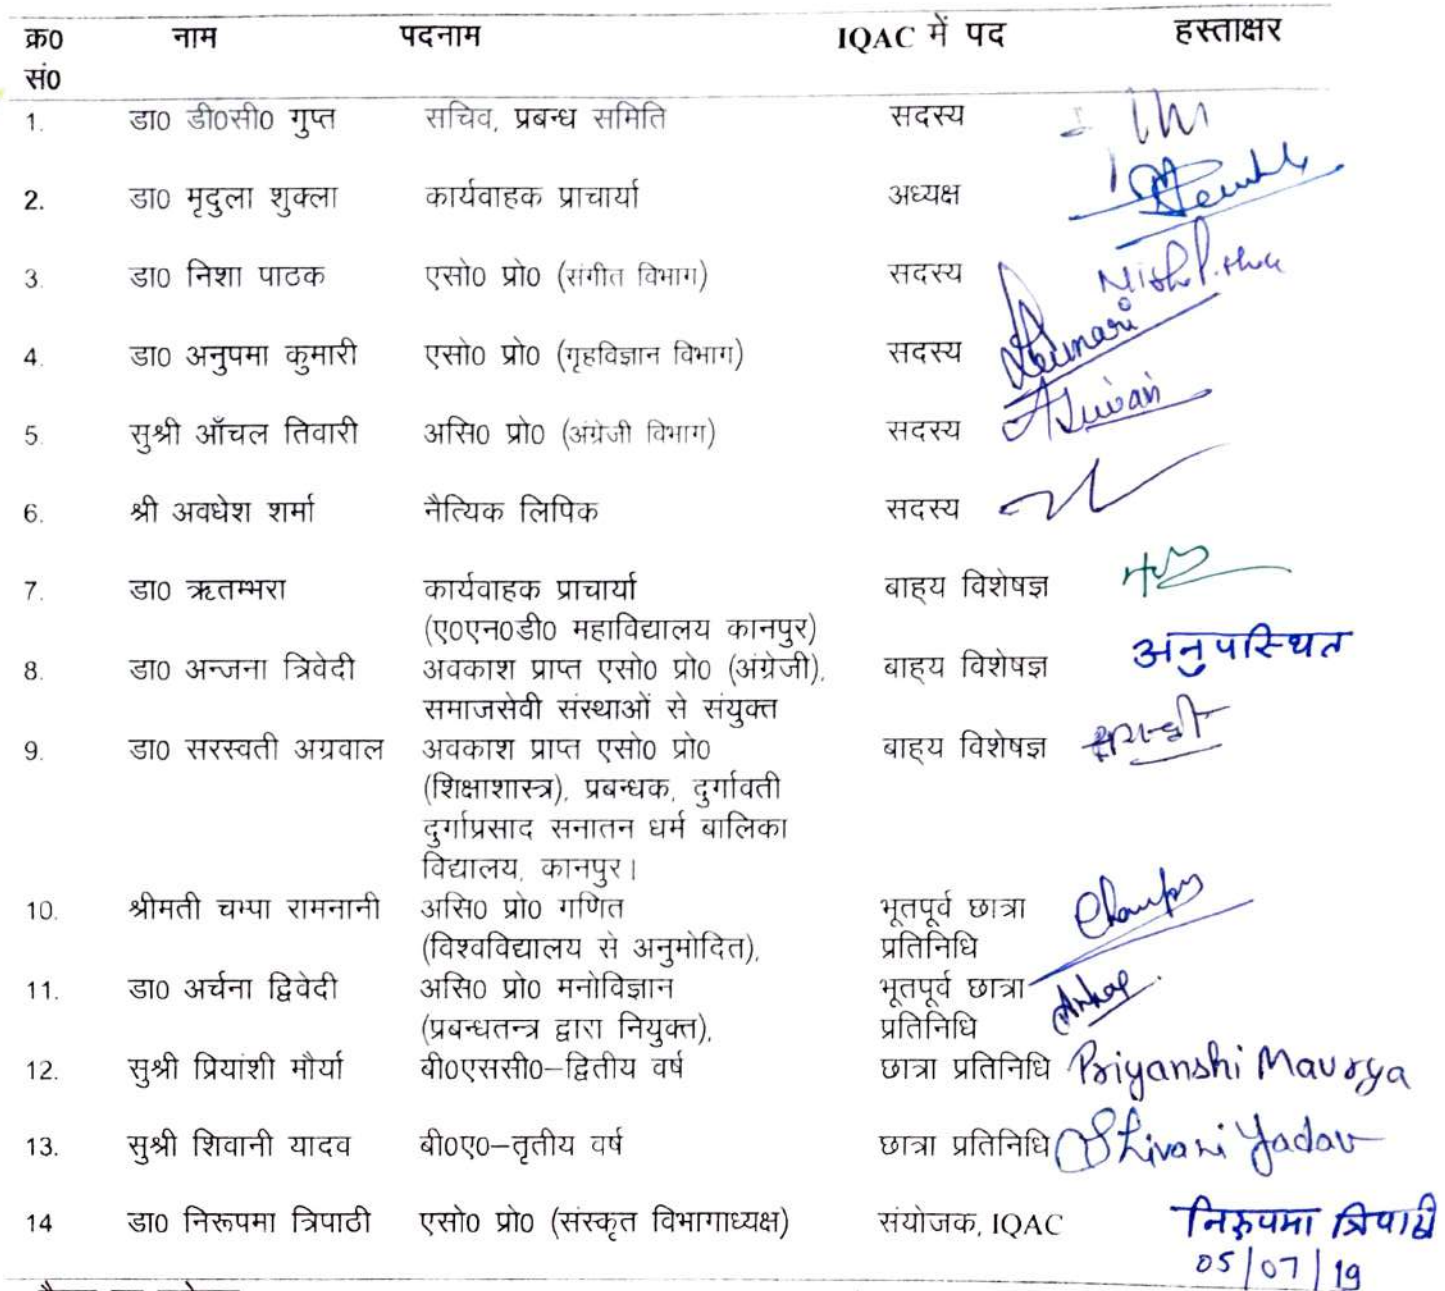 क्र0 नाम पदनाम IQAC में पद हस्ताक्षर
सं0
1. डा0 डी0सी0 गुप्त सचिव, प्रबन्ध समिति सदस्य
2. डा0 मृदुला शुक्ला कार्यवाहक प्राचार्या अध्यक्ष
3. डा0 निशा पाठक एसो0 प्रो0 (संगीत विभाग) सदस्य
4. डा0 अनुपमा कुमारी एसो0 प्रो0 (गृहविज्ञान विभाग) सदस्य Kumari
5. सुश्री आँचल तिवारी असि0 प्रो0 (अंग्रेजी विभाग) सदस्य ATiwari
6. श्री अवधेश शर्मा नैत्यिक लिपिक सदस्य
7. डा0 ऋतम्भरा कार्यवाहक प्राचार्या बाह्य विशेषज्ञ
(ए0एन0डी0 महाविद्यालय कानपुर)
8. डा0 अन्जना त्रिवेदी अवकाश प्राप्त एसो0 प्रो0 (अंग्रेजी), बाह्य विशेषज्ञ अनुपस्थित
समाजसेवी संस्थाओं से संयुक्त
9. डा0 सरस्वती अग्रवाल अवकाश प्राप्त एसो0 प्रो0 बाह्य विशेषज्ञ
(शिक्षाशास्त्र), प्रबन्धक, दुर्गावती
दुर्गाप्रसाद सनातन धर्म बालिका
विद्यालय, कानपुर।
10. श्रीमती चम्पा रामनानी असि0 प्रो0 गणित भूतपूर्व छात्रा
(विश्वविद्यालय से अनुमोदित), प्रतिनिधि
11. डा0 अर्चना द्विवेदी असि0 प्रो0 मनोविज्ञान भूतपूर्व छात्रा
(प्रबन्धतन्त्र द्वारा नियुक्त), प्रतिनिधि
12. सुश्री प्रियांशी मौर्या बी0एससी0–द्वितीय वर्ष छात्रा प्रतिनिधि Priyanshi Maurya
13. सुश्री शिवानी यादव बी0ए0–तृतीय वर्ष छात्रा प्रतिनिधि Shivani Yadav
14 डा0 निरूपमा त्रिपाठी एसो0 प्रो0 (संस्कृत विभागाध्यक्ष) संयोजक, IQAC निरूपमा त्रिपाठी
05/07/19